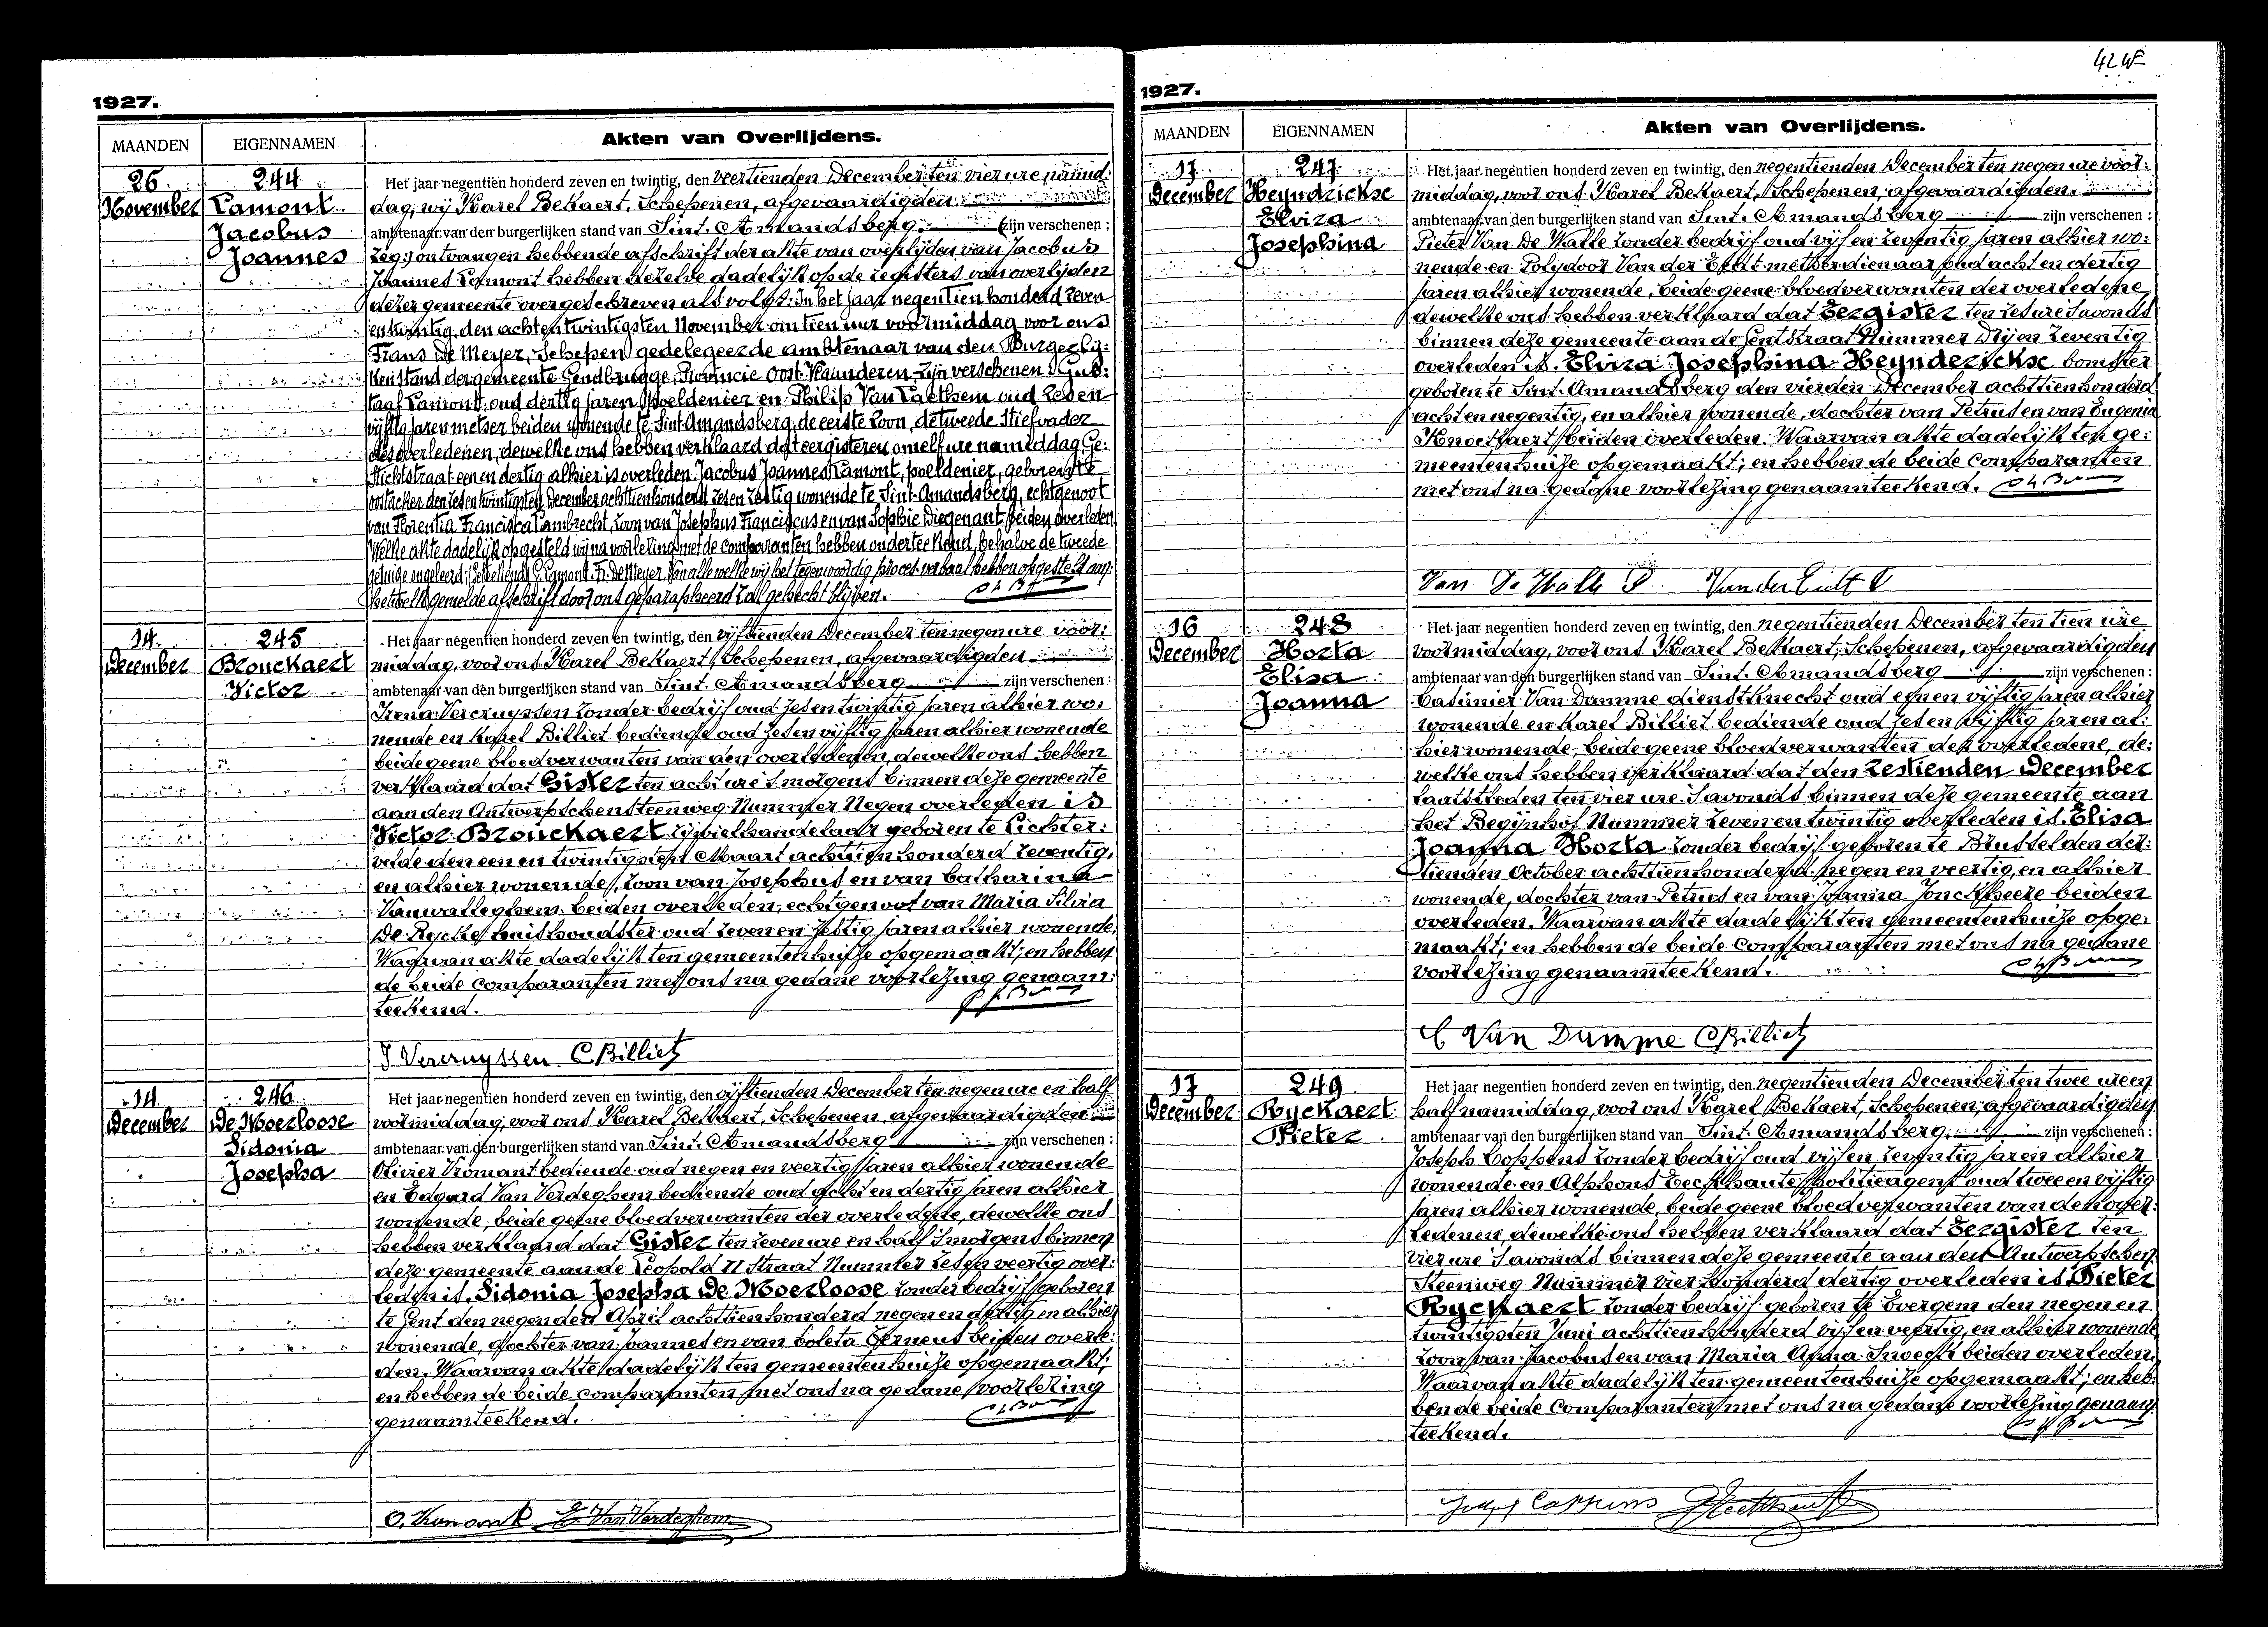 42 W
1927.
MAANDEN EIGENNAMEN Akten van Overlijdens.
26 November
244
Lamont
Jacobus
Joannes
Het jaar negentien honderd zeven en twintig, den veertienden December ten vier ure namid:
dag, wij Karel Bekaert, Schepenen, afgevaardigden
ambtenaar van den burgerlijken stand van Sint. Amandsberg. zijn verschenen:
zegg: ontvangen hebbende afschrift der akte van overlijden van Jacobus
Joannes Lamont hebben dezelve dadelijk op de registers van overlijden
dezer gemeente overgeschreven als volgt: In het jaar negentien honderd zeven
en twintig, den achtentwintigsten November om tien uur voormiddag voor ons
Frans De Meyer, Schepen gedelegeerde ambtenaar van den Burgerlij:
ken stand der gemeente Gendbrugge, Provincie Oost-Vlaanderen, zijn verschenen Gus:
taaf Lamont oud dertig jaren poeldenier en Philip Van Laethem oud zesen
vijftig jaren metser beiden wonende te Sint-Amandsberg, de eerste zoon, de tweede stiefvader
des overledenen, dewelke ons hebben verklaard dat eergisteren om elf ure namiddag Ge:
stichtstraat een en dertig alhier is overleden Jacobus Joannes Lamont, poeldenier, geboren te
Oostacker den zesentwintigsten December achttienhonderd zesen zestig wonende te Sint-Amandsberg, echtgenoot
van Florentia Francisca Lambrecht, zoon van Josephus Franciscus en van Sophie Diegenant beiden overleden
Welke akte dadelijk opgesteld wij na voorlezing met de comparanten hebben onderteekend, behalve de tweede
getuige ongeleerd: (Geteekend) G. Lamont. Fr. De Meyer. Van alle welke wij het tegenwoordig proces-verbaal hebben opgesteld aan
hetwelk gemelde afschrift door ons geparapheerd zal gehecht blijven.
14 December
245
Brouckaert
Victor
Het jaar negentien honderd zeven en twintig, den vijftienden December ten negen ure voor:
middag, voor ons Karel Bekaert, Schepenen, afgevaardigden
ambtenaar van den burgerlijken stand van Sint. Amandsberg zijn verschenen:
Irena Vercruyssen zonder bedrijf oud zes en twintig jaren alhier wo:
nende en Karel Billiet bediende oud zes en vijftig jaren alhier wonende
beide geene bloedverwanten van den overledenen, dewelke ons hebben
verklaard dat Gister ten acht ure 's morgens binnen deze gemeente
aan den Antwerpschensteenweg Nummer Negen overleden is
Victor Brouckaert rijwielhandelaar geboren te Lichter:
velde den een en twintigsten Maart achttien honderd zeventig,
en alhier wonende, zoon van Josephus en van Catharina
Vanwalleghem beiden overleden; echtgenoot van Maria Silvia
De Rycke huishoudster oud zeven en zestig jaren alhier wonende,
Waarvan akte dadelijk ten gemeentenhuize opgemaakt; en hebben
de beide comparanten met ons na gedane voorlezing genaam:
teekend.
I Vercruyssen C. Billiet
14 December
246
De Moerloose
Sidonia
Josepha
Het jaar negentien honderd zeven en twintig, den vijftienden December ten negen ure en half
voormiddag, voor ons Karel Bekaert, Schepenen, afgevaardigden
ambtenaar van den burgerlijken stand van Sint. Amandsberg zijn verschenen:
Olivier Vromant bediende oud negen en veertig jaren alhier wonende
en Edgard Van Verdeghem bediende oud acht en dertig jaren alhier
wonende, beide geene bloedverwanten der overledene, dewelke ons
hebben verklaard dat Gister ten zeven ure en half 's morgens binnen
deze gemeente aan de Leopold II straat Nummer zes en veertig over:
leden is. Sidonia Josepha De Moerloose zonder bedrijf geboren
te Gent den negenden April achttien honderd negen en dertig en alhier
wonende, dochter van Joannes en van Coleta Terneus beiden overle:
den. Waarvan akte dadelijk ten gemeentenhuize opgemaakt;
en hebben de beide comparanten met ons na gedane voorlezing
genaamteekend.
O. Vromant E. Van Verdeghem
1927.
MAANDEN EIGENNAMEN Akten van Overlijdens.
17 December
247
Heyndrickse
Elvira
Josephina
Het jaar negentien honderd zeven en twintig, den negentienden December ten negen ure voor:
middag, voor ons Karel Bekaert, Schepenen, afgevaardigden.
ambtenaar van den burgerlijken stand van Sint. Amandsberg zijn verschenen:
Pieter Van De Walle zonder bedrijf oud vijf en zeventig jaren alhier wo:
nende en Polydoor Van der Eecht metserdienaar oud acht en dertig
jaren alhier wonende, beide geene bloedverwanten der overledene,
dewelke ons hebben verklaard dat Eergister ten zes ure 's avonds
binnen deze gemeente aan de Gentstraat Nummer Drij en zeventig
overleden is. Elvira Josephina Heynderickse bomster
geboren te Sint. Amandsberg den vierden December achttien honderd
acht en negentig, en alhier wonende, dochter van Petrus en van Eugenia
beiden overleden. Waarvan akte dadelijk ten ge:
meentenhuize opgemaakt; en hebben de beide comparanten
met ons na gedane voorlezing genaamteekend.
Van De Walle P Van der Eecht P
16 December
248
Horta
Elisa
Joanna
Het jaar negentien honderd zeven en twintig, den negentienden December ten tien ure
voormiddag, voor ons Karel Bekaert, Schepenen, afgevaardigden
ambtenaar van den burgerlijken stand van Sint. Amandsberg zijn verschenen:
Casimier Van Damme dienstknecht oud een en vijftig jaren alhier
wonende en Karel Billiet bediende oud zes en vijftig jaren al:
hier wonende, beide geene bloedverwanten der overledene, de:
welke ons hebben verklaard dat den Zestienden December
laatstleden ten vier ure 's avonds binnen deze gemeente aan
het Begijnhof Nummer zeven en twintig overleden is. Elisa
Joanna Horta zonder bedrijf geboren te Brussel den der:
tienden October achttienhonderd negen en veertig, en alhier
wonende, dochter van Petrus en van Joanna Jonckheere beiden
overleden. Waarvan akte dadelijk ten gemeentenhuize opge:
maakt; en hebben de beide comparanten met ons na gedane
voorlezing genaamteekend.
C Van Damme C Billiet
17 December
249
Ryckaert
Pieter
Het jaar negentien honderd zeven en twintig, den negentienden December ten twee ure en
half namiddag, voor ons Karel Bekaert, Schepenen, afgevaardigden
ambtenaar van den burgerlijken stand van Sint. Amandsberg. zijn verschenen:
Joseph Coppens zonder bedrijf oud vijf en zeventig jaren alhier
wonende en Alphons politieagent oud twee en vijftig
jaren alhier wonende, beide geene bloedverwanten van den over:
ledenen, dewelke ons hebben verklaard dat Eergister ten
vier ure 's avonds binnen deze gemeente aan den Antwerpschen
Steenweg Nummer vier honderd dertig overleden is. Pieter
Ryckaert zonder bedrijf geboren te Evergem den negen en
twintigsten Juni achttien honderd vijf en veertig, en alhier wonende
zoon van Jacobus en van Maria Anna Snoeck beiden overleden.
Waarvan akte dadelijk ten gemeentenhuize opgemaakt; en heb:
bende beide comparanten met ons na gedane voorlezing genaam
teekend.
Joseph Coppens